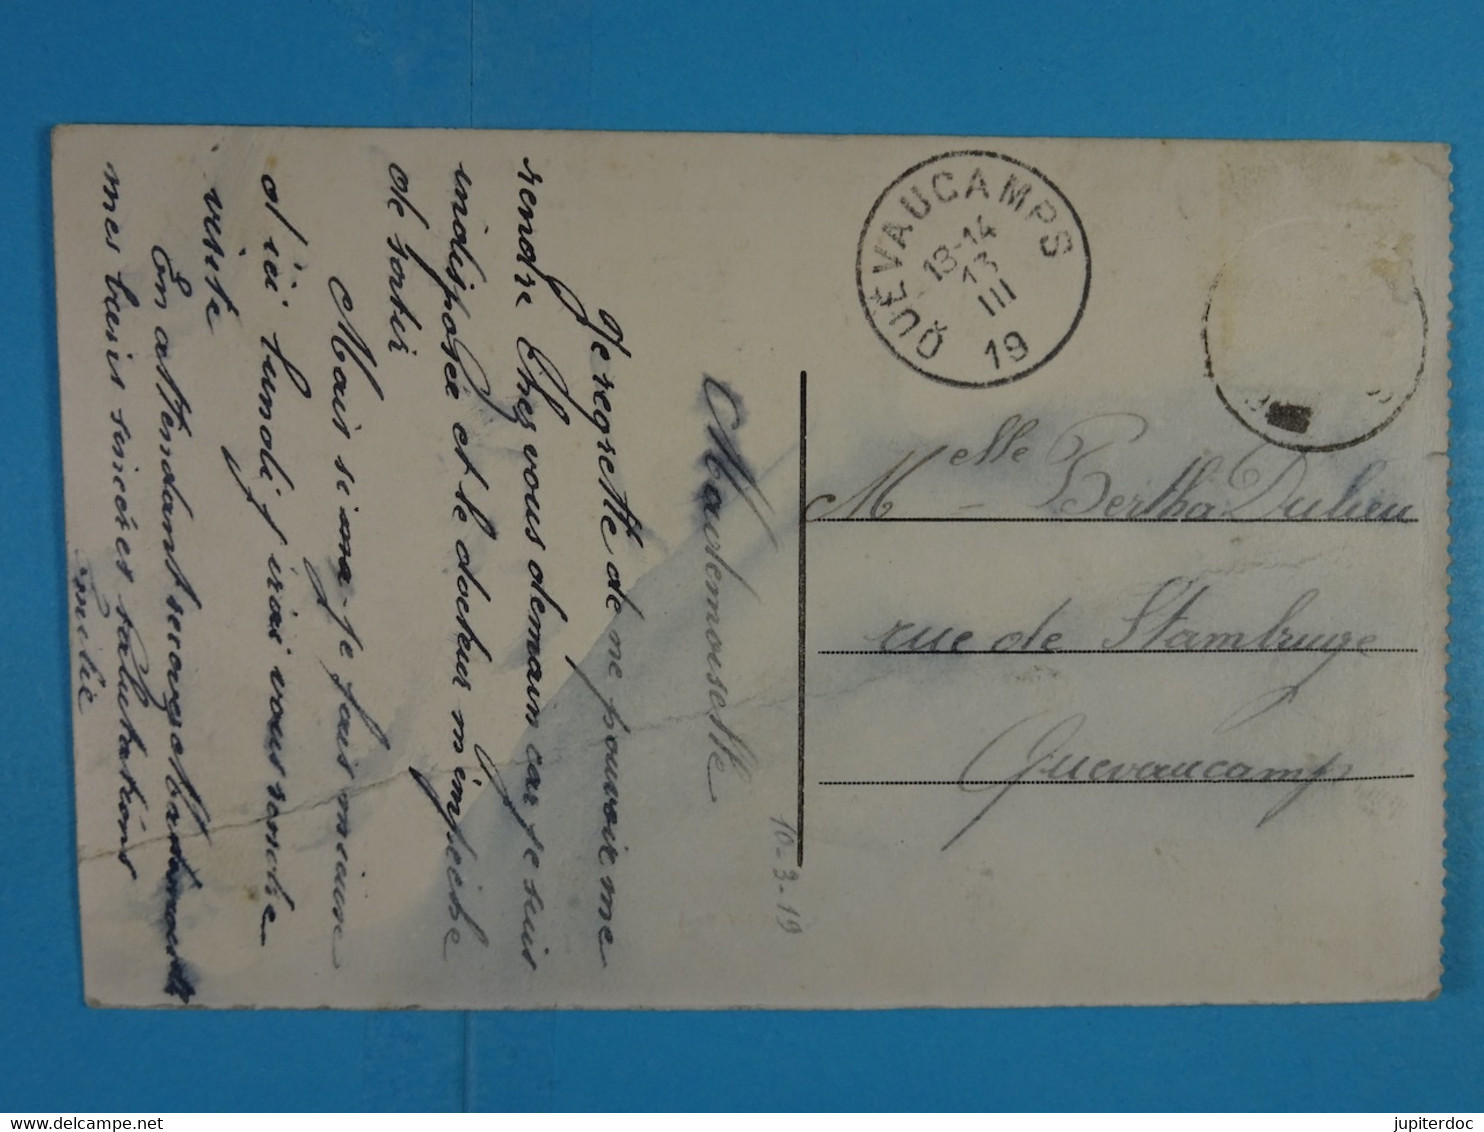 Mademoiselle
Je regrette de ne pouvoir me
rendre Chez vous demain car je suis
indisposée et le docteur m'empêche
de sortir
Mais si ma je fais mieux
d'ici lundi j'irai vous rendre
visite
En attendant recevez
mes baisers sincères salutations
10-3-19
QUÉVAUCAMPS
13-14
13
III
19
Melle Bertha Dulieu
rue de Stambruge
Quevaucamp
delcampe.net
jupiterdoc